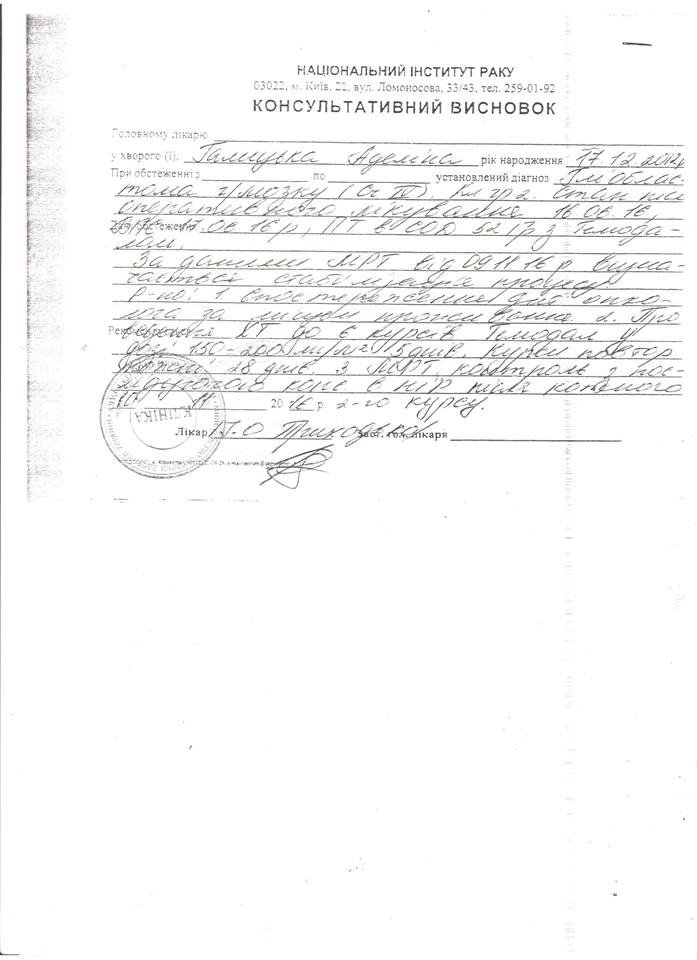 НАЦІОНАЛЬНИЙ ІНСТИТУТ РАКУ
03022, м. Київ, 22, вул. Ломоносова, 33/43, тел. 259-01-92
КОНСУЛЬТАТИВНИЙ ВИСНОВОК
Головному лікарю
у хворого (ї). Галицька Аделіна рік народження 17.12.2012р
При обстеженні з по установлений діагноз Гліоблас-
тома г/мозку (Ст IV). Кл гр 2. Стан після
оперативного лікування 16.06.16,
Дата обстеження .06.16р, ПТ в СОД 52 Гр з Темода-
лом.
За даними МРТ від 09.11.16 р визна-
чається стабілізація процесу
Р-но: 1. Спостереження дит онко-
лога за місцем проживання 2. Про
Рекомендовано ХТ до 6 курсів Темодал у
дозі 150-200 мг/м2 5 днів. Курси повтор
кожні 28 днів. 3 МРТ контроль з пос-
лідуючою конс в НІР після кожного
10 11 2016 р. 2-го курсу.
КЛІНІКА
Лікар Заст. гол. лікаря